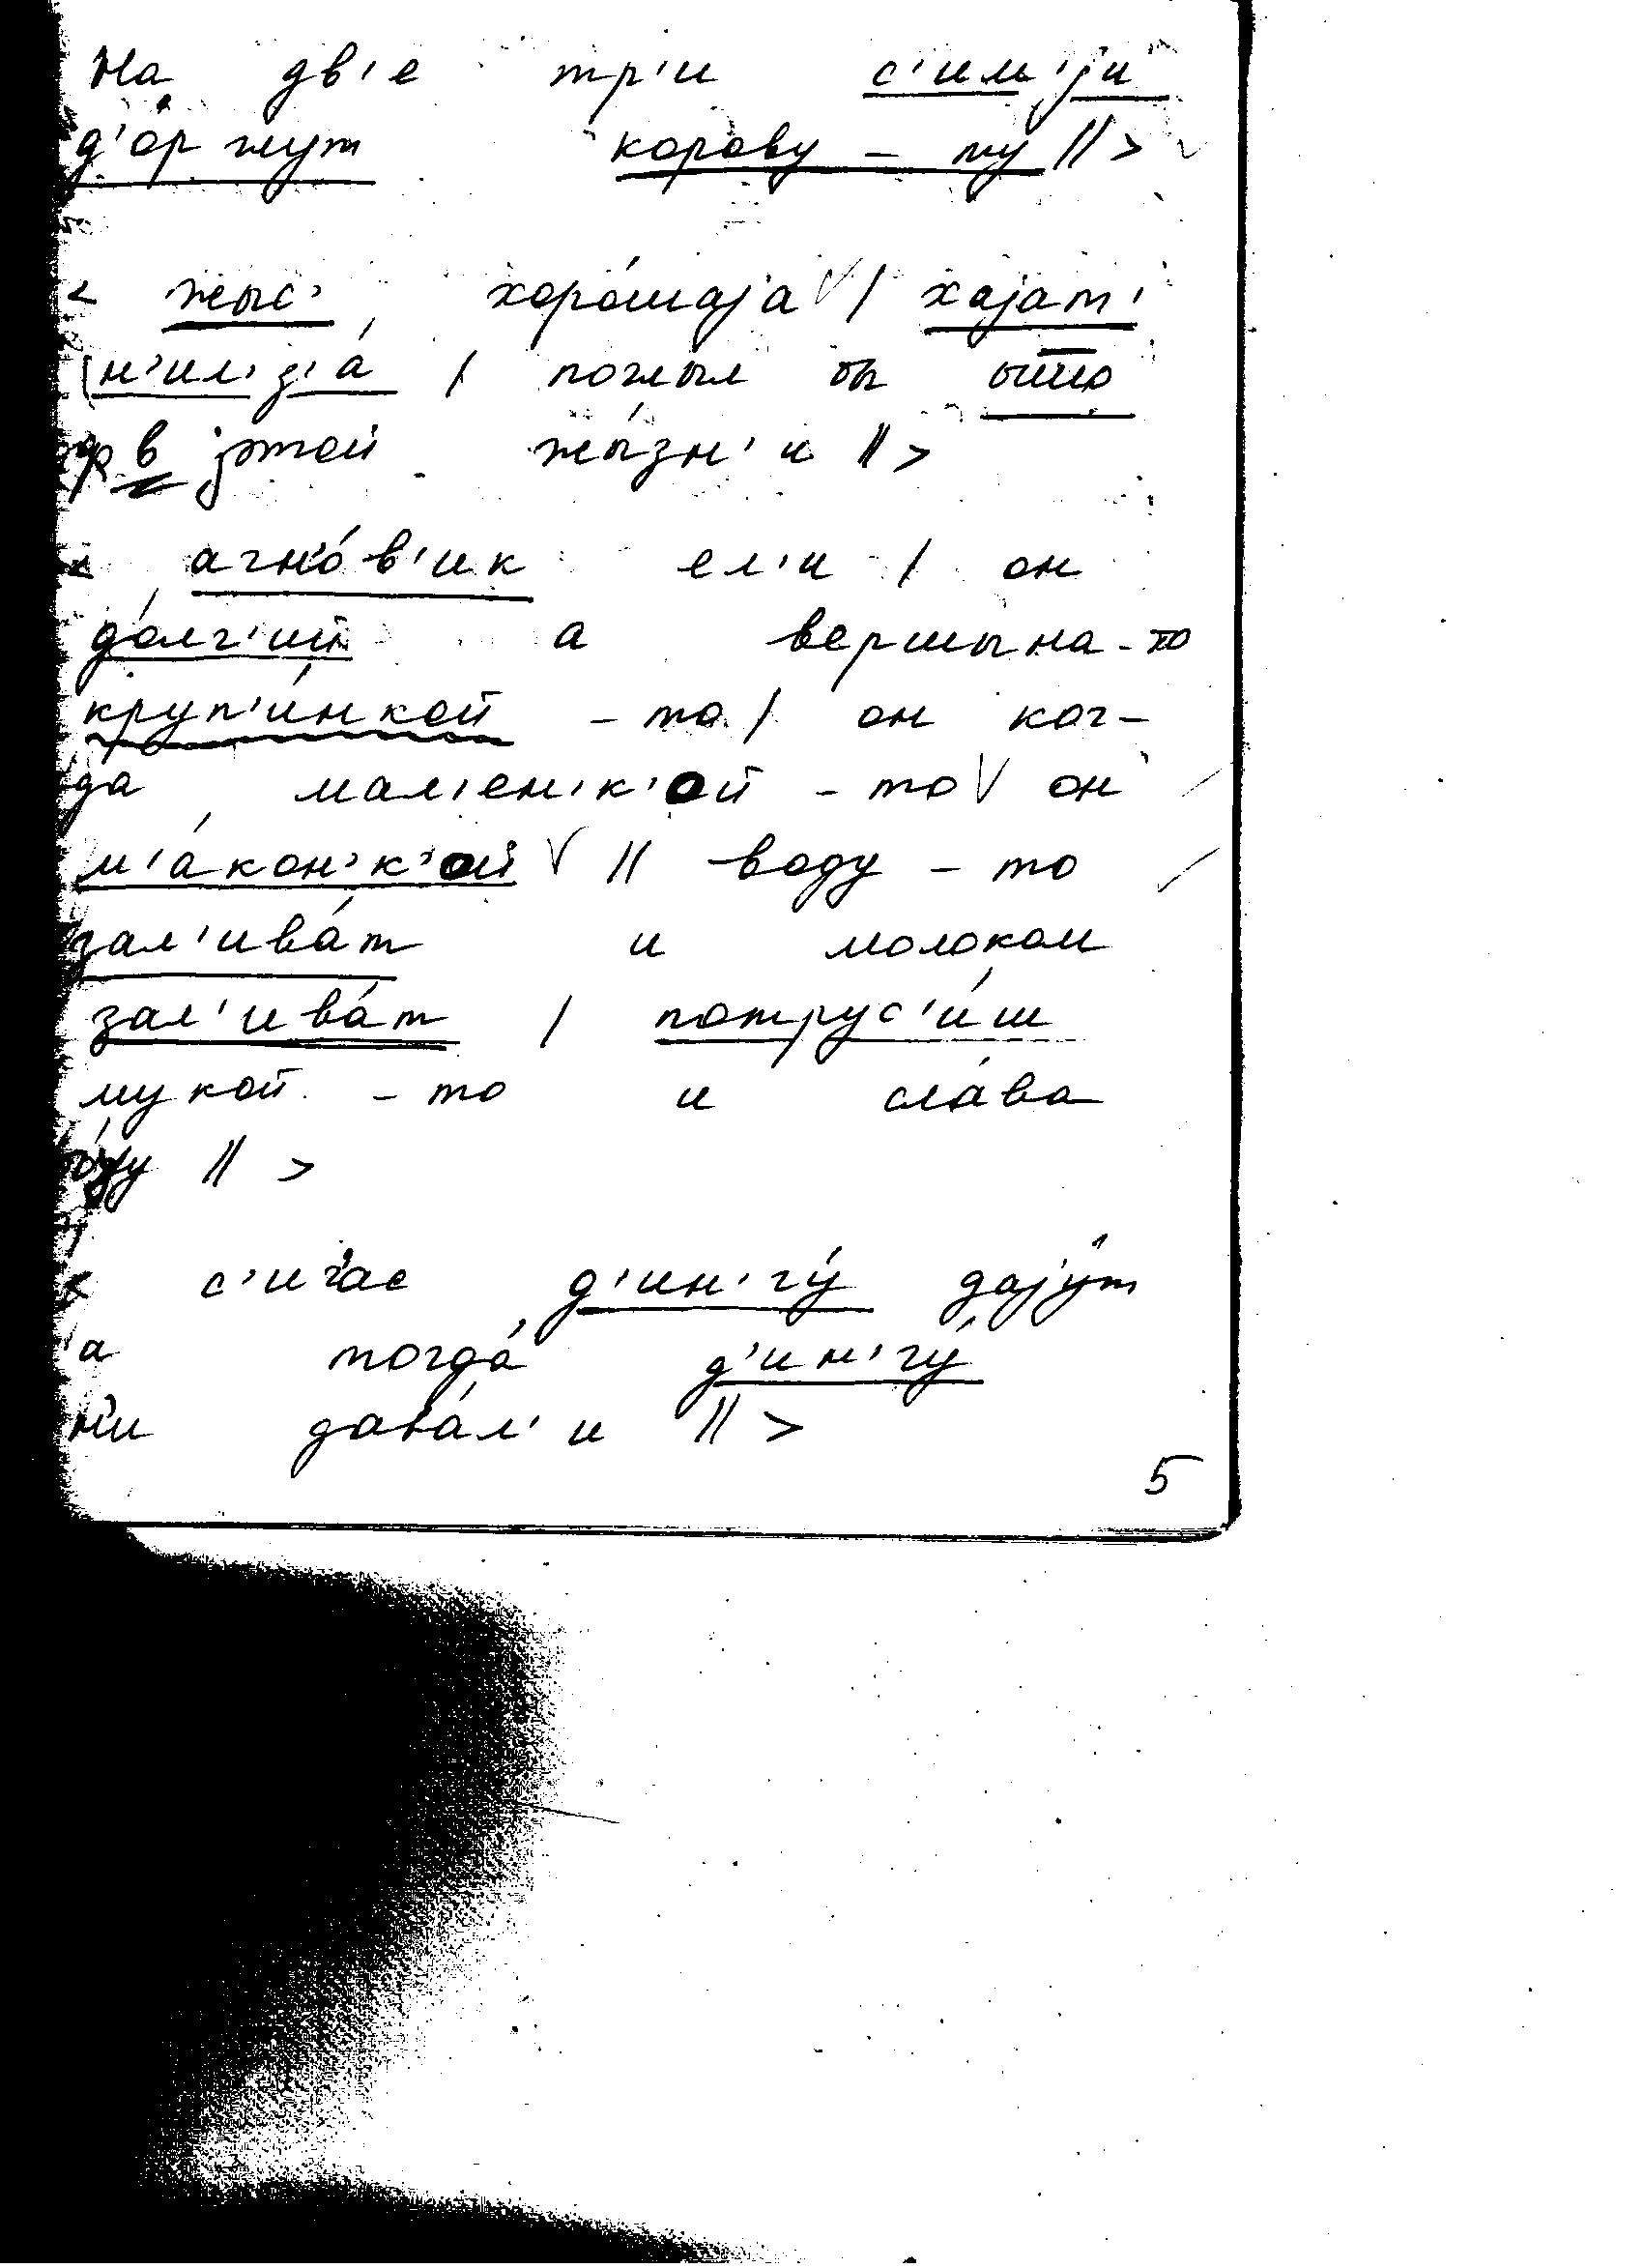 На дв'е тр'и с'им'jи
д'оржут корову - ту // >
< жыс' хорóшаjа / хаjат'
н'ил'з'á / пожыл бы ышшо
в jэтой жы́зн'и // >
< агнóв'ик ел'и / он
дóлг'ий а вершына-то
круп'и́нкой - то / он ког-
да мал'ен'к'ой - то он
м'áкон'к'ой // воду - то
зал'ивáт и молоком
зал'ивáт / потрус'и́ш
мукой - то и слáва
бóгу // >
< с'ичас д'ин'гу́ даjу́т
а тогдá д'ин'гу́
н'и давáл'и // >
5